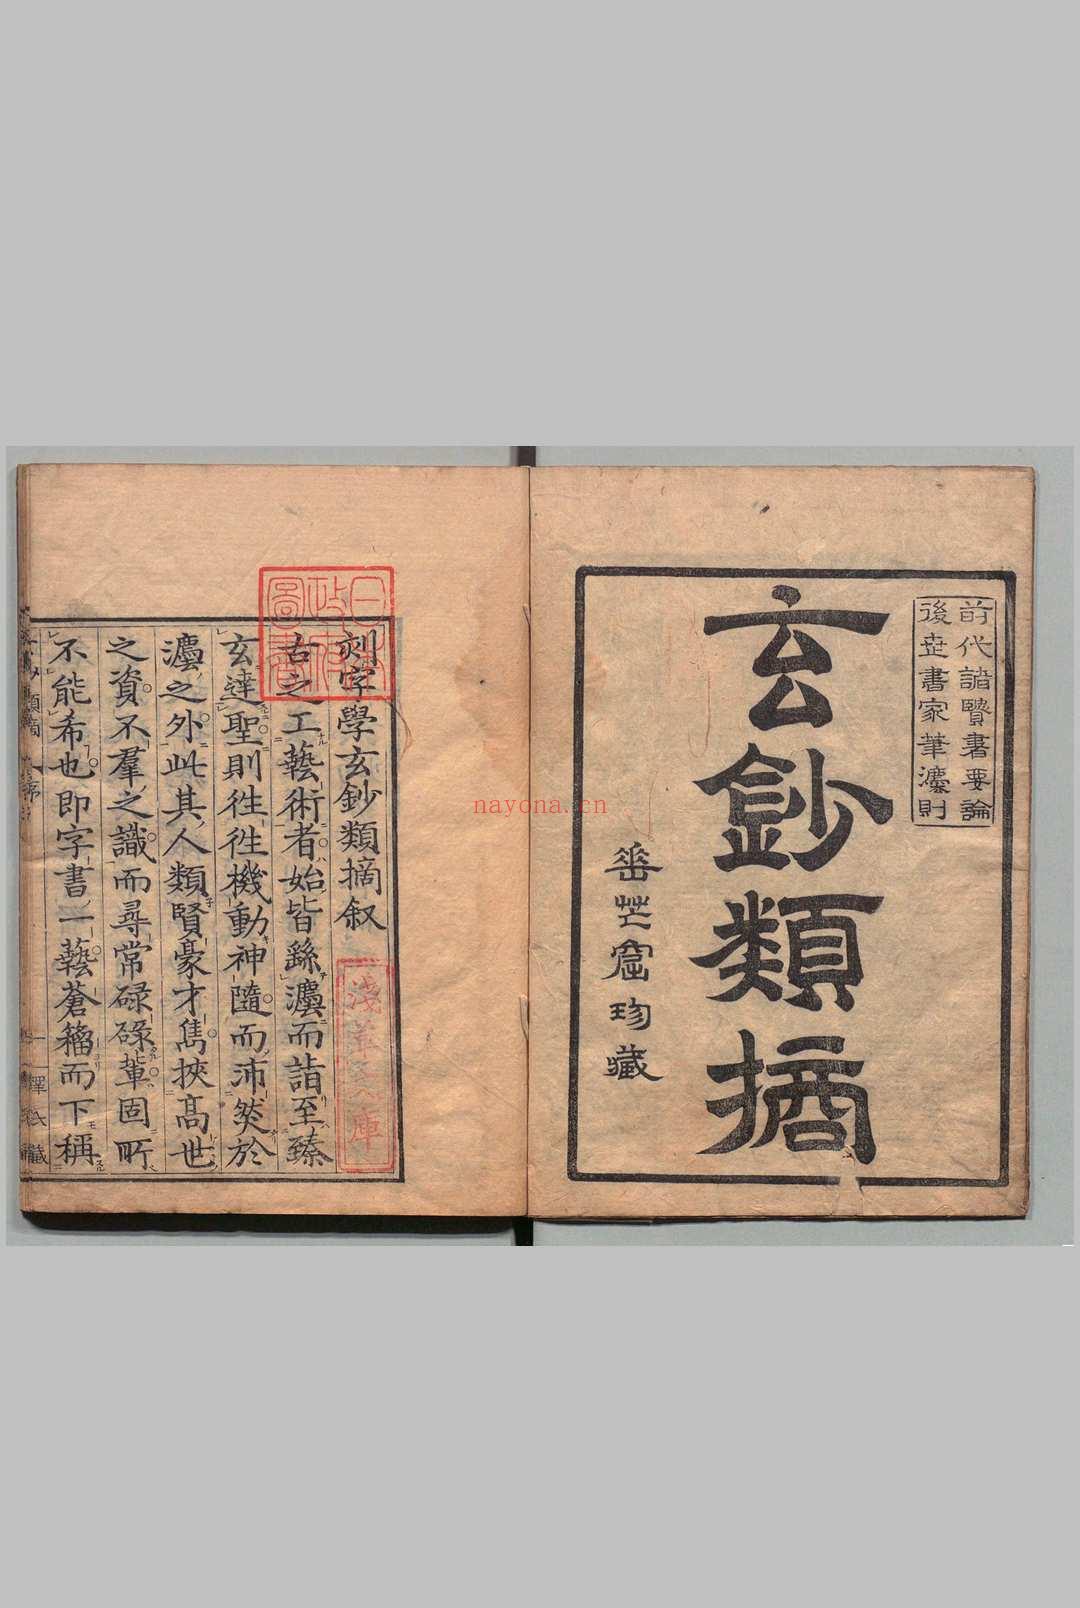 前代諸賢書要論
後世書家筆灋則
玄鈔類摘
華芒窟珍藏
刻字學玄鈔類摘叙
古之工藝術者始皆繇灋而詣至臻
玄達聖則徃徃機動神隨而沛然於
灋之外此其人類賢豪才雋挾高世
之資不羣之識而尋常碌碌輩固所
不能希也即字書一藝蒼籀而下稱
日本
政府
圖書
淺草文庫
nayona.cn